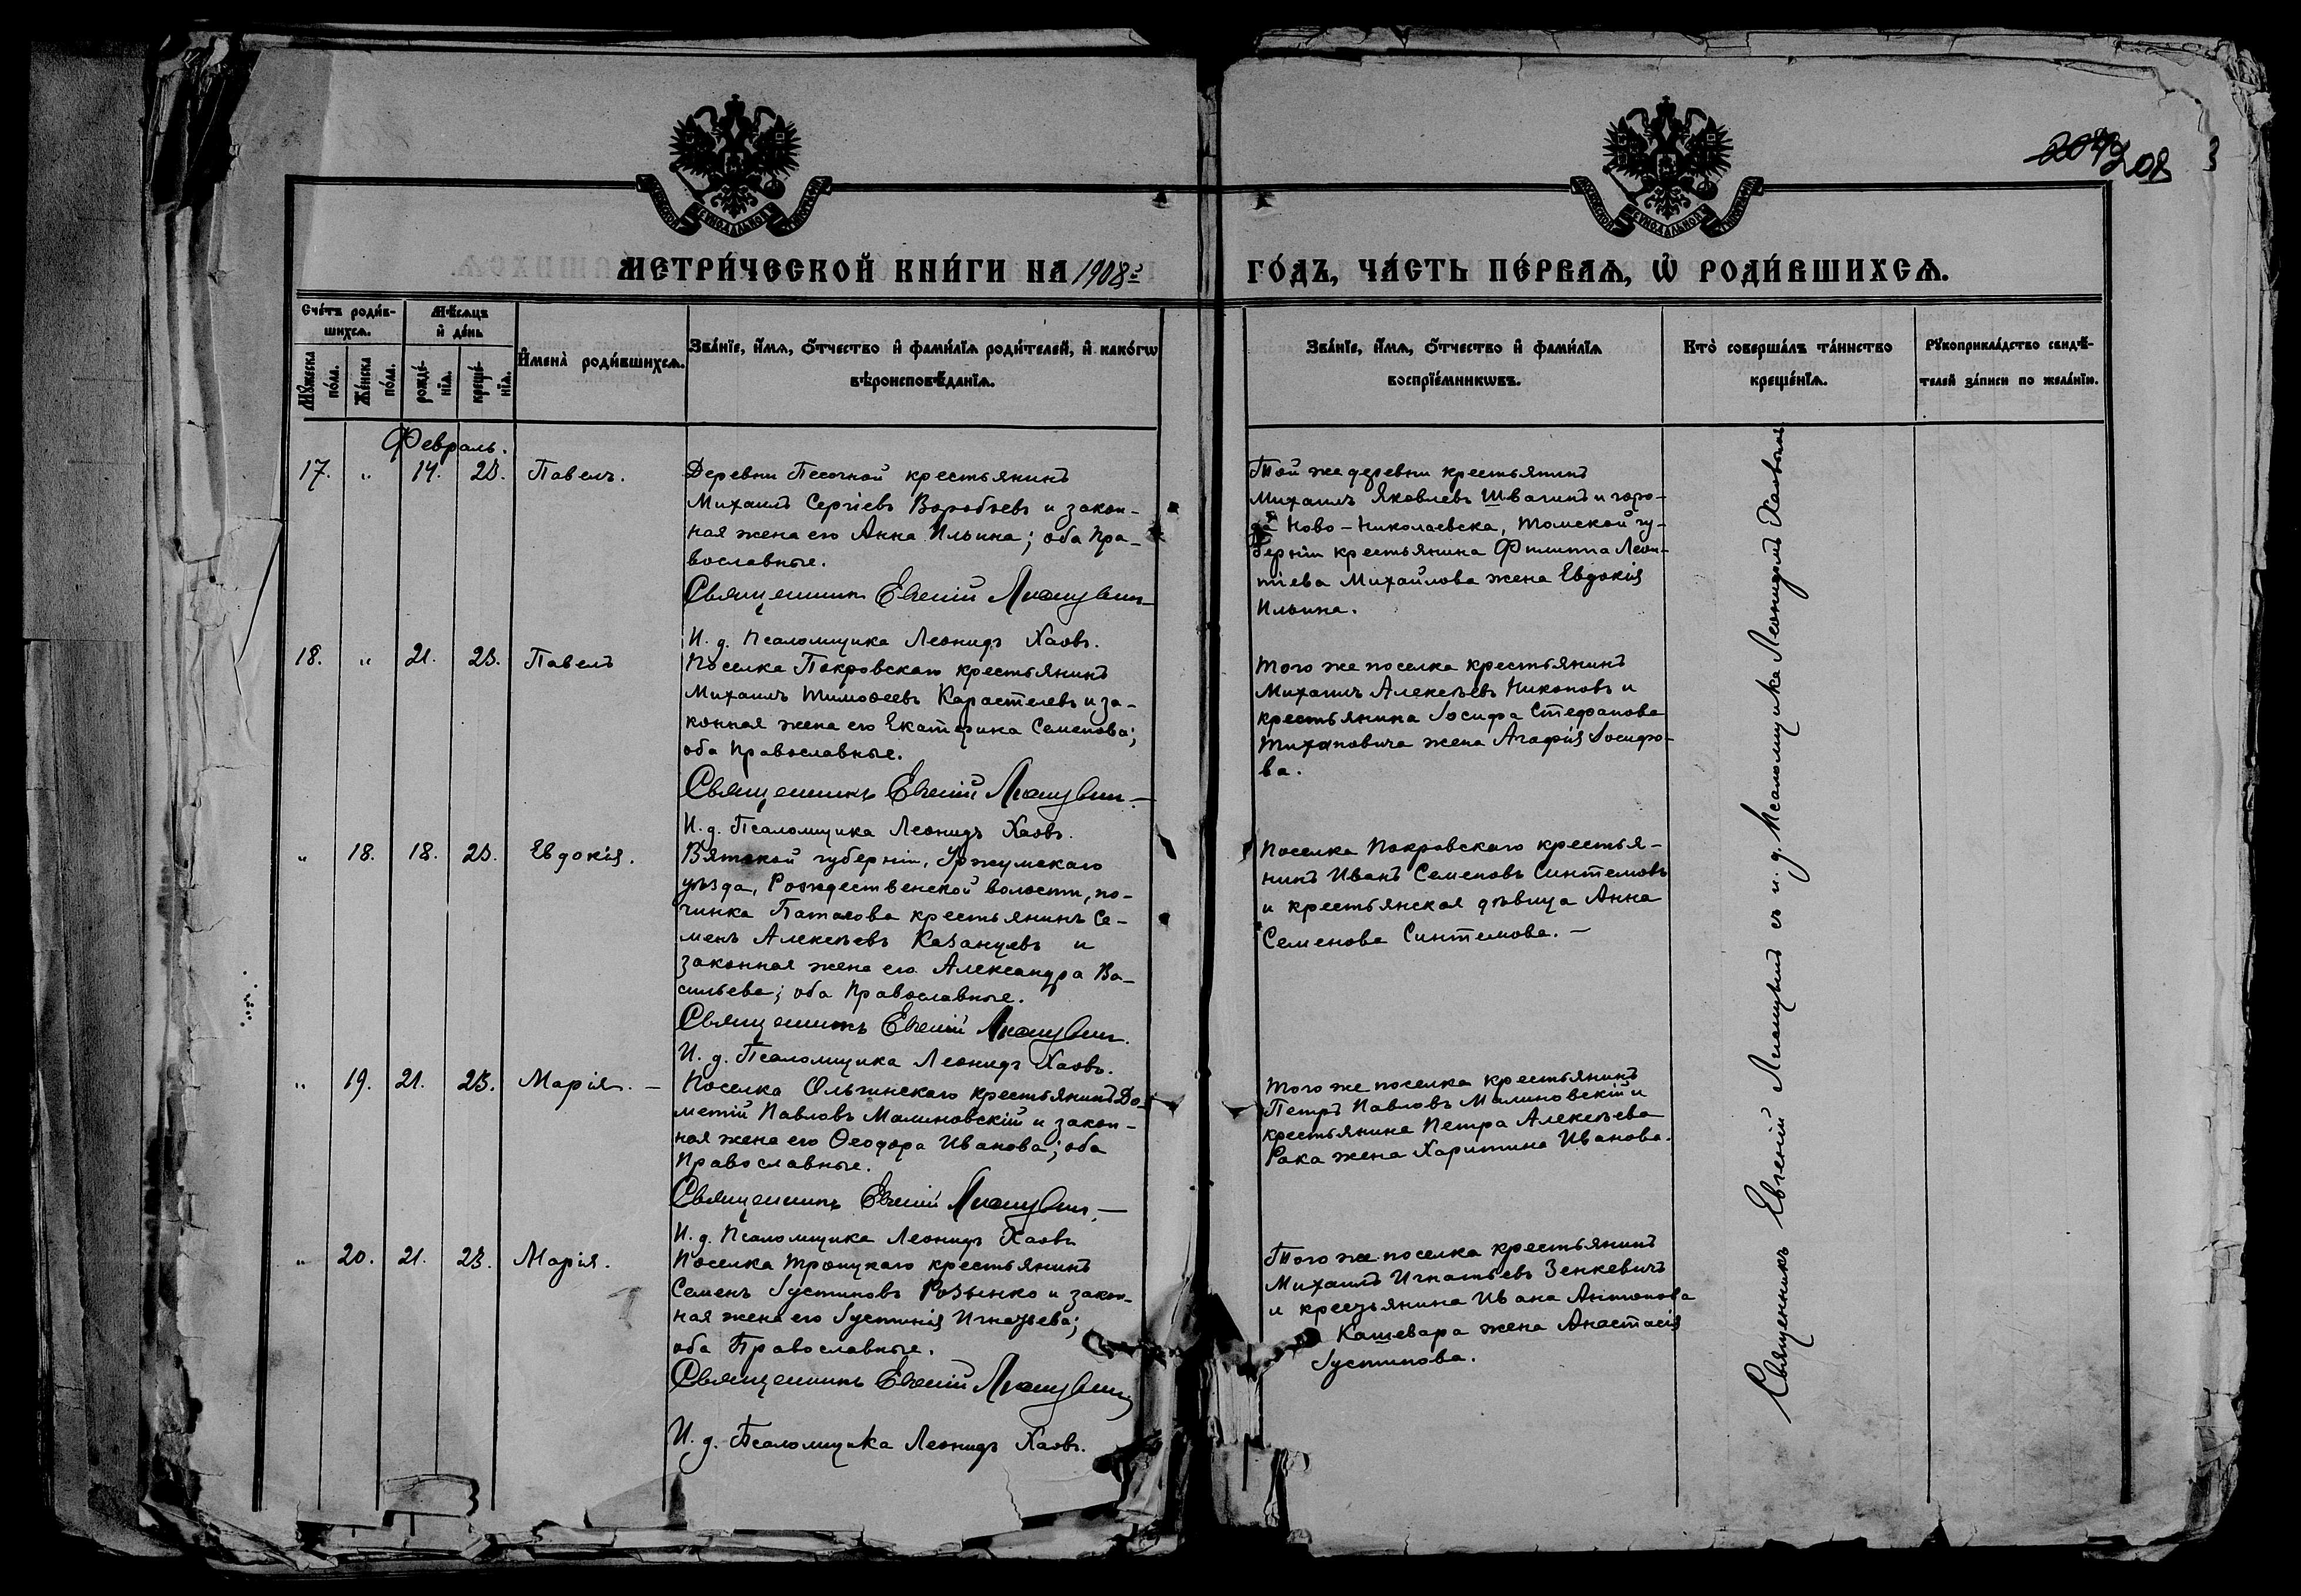 208
МЕТРИ́ЧЕСКОЙ КНИ́ГИ НА 1908й
ГО́ДЪ, ЧА́СТЬ ПЕ́РВАѦ, Ѡ҆ РОДИ́ВШИХСѦ.
Сче́тъ роди́в-
шихсѧ.
Мѣ́сѧцъ
и҆ де́нь
Мꙋ́жеска по́ла.
Же́нска по́ла.
рожде́-
нїѧ.
креще́-
нїѧ.
И҆мена̀ роди́вшихсѧ.
Зва́нїе, и҆́мѧ, ѻ҆́тчество и҆ фами́лїѧ роди́телей, и҆ како́гѡ
вѣроисповѣ́данїѧ.
Зва́нїе, и҆́мѧ, ѻ҆́тчество и҆ фами́лїѧ
воспрїе́мникѡвъ.
Кто̀ соверша́лъ та́инство
креще́нїѧ.
Рꙋкоприкла́дство свидѣ́-
телей за́писи по жела́нїю.
Февраль.
17. " 14. 23. Павелъ.
Деревни Песочной крестьянинъ
Михаилъ Сергіевъ Воробьевъ и закон-
ная жена его Анна Ильина; оба Пра-
вославные.
Священникъ Евгеній
И. д. Псаломщика Леонидъ Хаовъ.
Той же деревни крестьянинъ
Михаилъ Яковлевъ Швагинъ и горо-
да Ново-Николаевска, Томской гу-
берніи крестьянина Филиппа Леон-
тіева Михайлова жена Евдокія
Ильина.
18. " 21. 23. Павелъ
Поселка Покровскаго крестьянинъ
Михаилъ Тимоѳеевъ Карастелевъ и за-
конная жена его Екатерина Семенова;
оба Православные.
Священникъ Евгеній
И. д. Псаломщика Леонидъ Хаовъ.
Того же поселка крестьянинъ
Михаилъ Алексѣевъ Никоновъ и
крестьянина Іосифа Стефанова
Тихановича жена Агафія Іосифо-
ва.
" 18. 18. 23. Евдокія.
Вятской губерніи, Уржумскаго
уѣзда, Рождественской волости, по-
чинка крестьянинъ Се-
менъ Алексѣевъ Казанцевъ и
законная жена его Александра Ва-
сильева; оба Православные.
Священникъ Евгеній
И. д. Псаломщика Леонидъ Хаовъ.
Поселка Покровскаго крестья-
нинъ Иванъ Семеновъ Синтемовъ
и крестьянская дѣвица Анна
Семенова Синтемова. —
" 19. 21. 23. Марія. —
Поселка Ольгинскаго крестьянинъ До-
метій Павловъ Малиновскій и закон-
ная жена его Ѳеодора Иванова; оба
Православные.
Священникъ Евгеній
И. д. Псаломщика Леонидъ Хаовъ
Того же поселка крестьянинъ
Петръ Павловъ Малиновскій и
крестьянина Петра Алексѣева
Рака жена Харитина Иванова.
" 20. 21. 23. Марія.
Поселка Троицкаго крестьянинъ
Семенъ Іустиновъ Розынко и закон-
ная жена его Іустинія Игнатьева;
оба Православные.
Священникъ Евгеній
И. д. Псаломщика Леонидъ Хаовъ.
Того же поселка крестьянинъ
Михаилъ Игнатьевъ Зенкевичъ
и крестьянина Ивана Антонова
Кашевара жена Анастасія
Іустинова.
Священникъ Евгеній съ и. д. Псаломщика Леонидомъ Хаовымъ